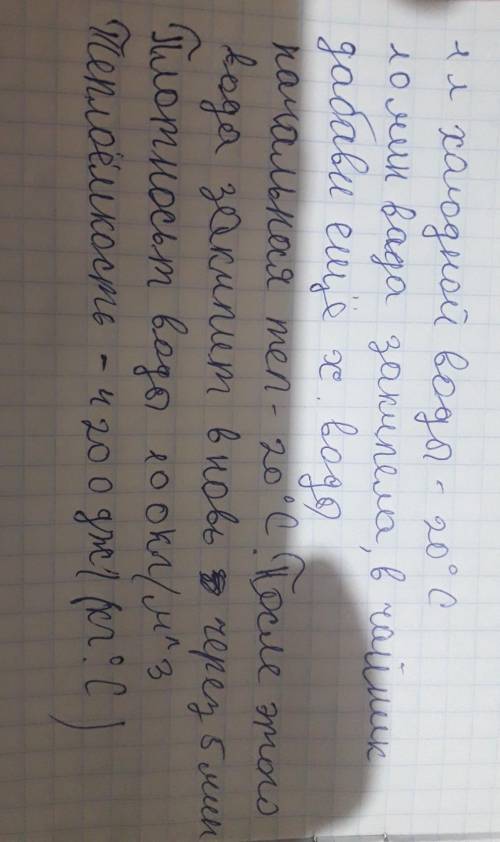 1 л халодной воды - 20°С
10 мин вада закипела, в чайник
дабави ещё х. воды
начальноя теп - 20°С. После этого
вода закипит вновь через 5 мин
Плотносьт воды 100кг/м^3
Теплоёмкость - 4200дж/(кг°С)